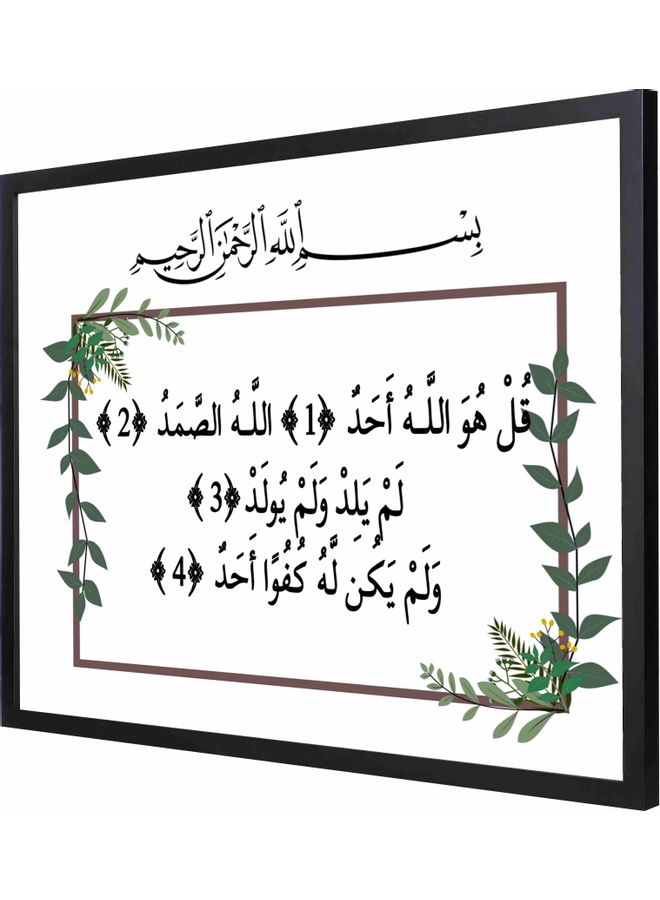 بِسْمِ ٱللَّهِ ٱلرَّحْمَٰنِ ٱلرَّحِيمِ
قُلْ هُوَ اللَّـهُ أَحَدٌ ﴿1﴾ اللَّـهُ الصَّمَدُ ﴿2﴾
لَمْ يَلِدْ وَلَمْ يُولَدْ ﴿3﴾
وَلَمْ يَكُن لَّهُ كُفُوًا أَحَدٌ ﴿4﴾